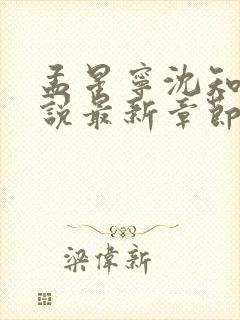 孟星寧沈知
說最新章節
梁偉新